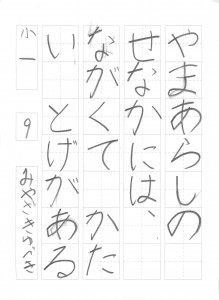 やまあらしの
せなかには、
ながくて　かた
い　とげがある
小一　9　みやざきふづき